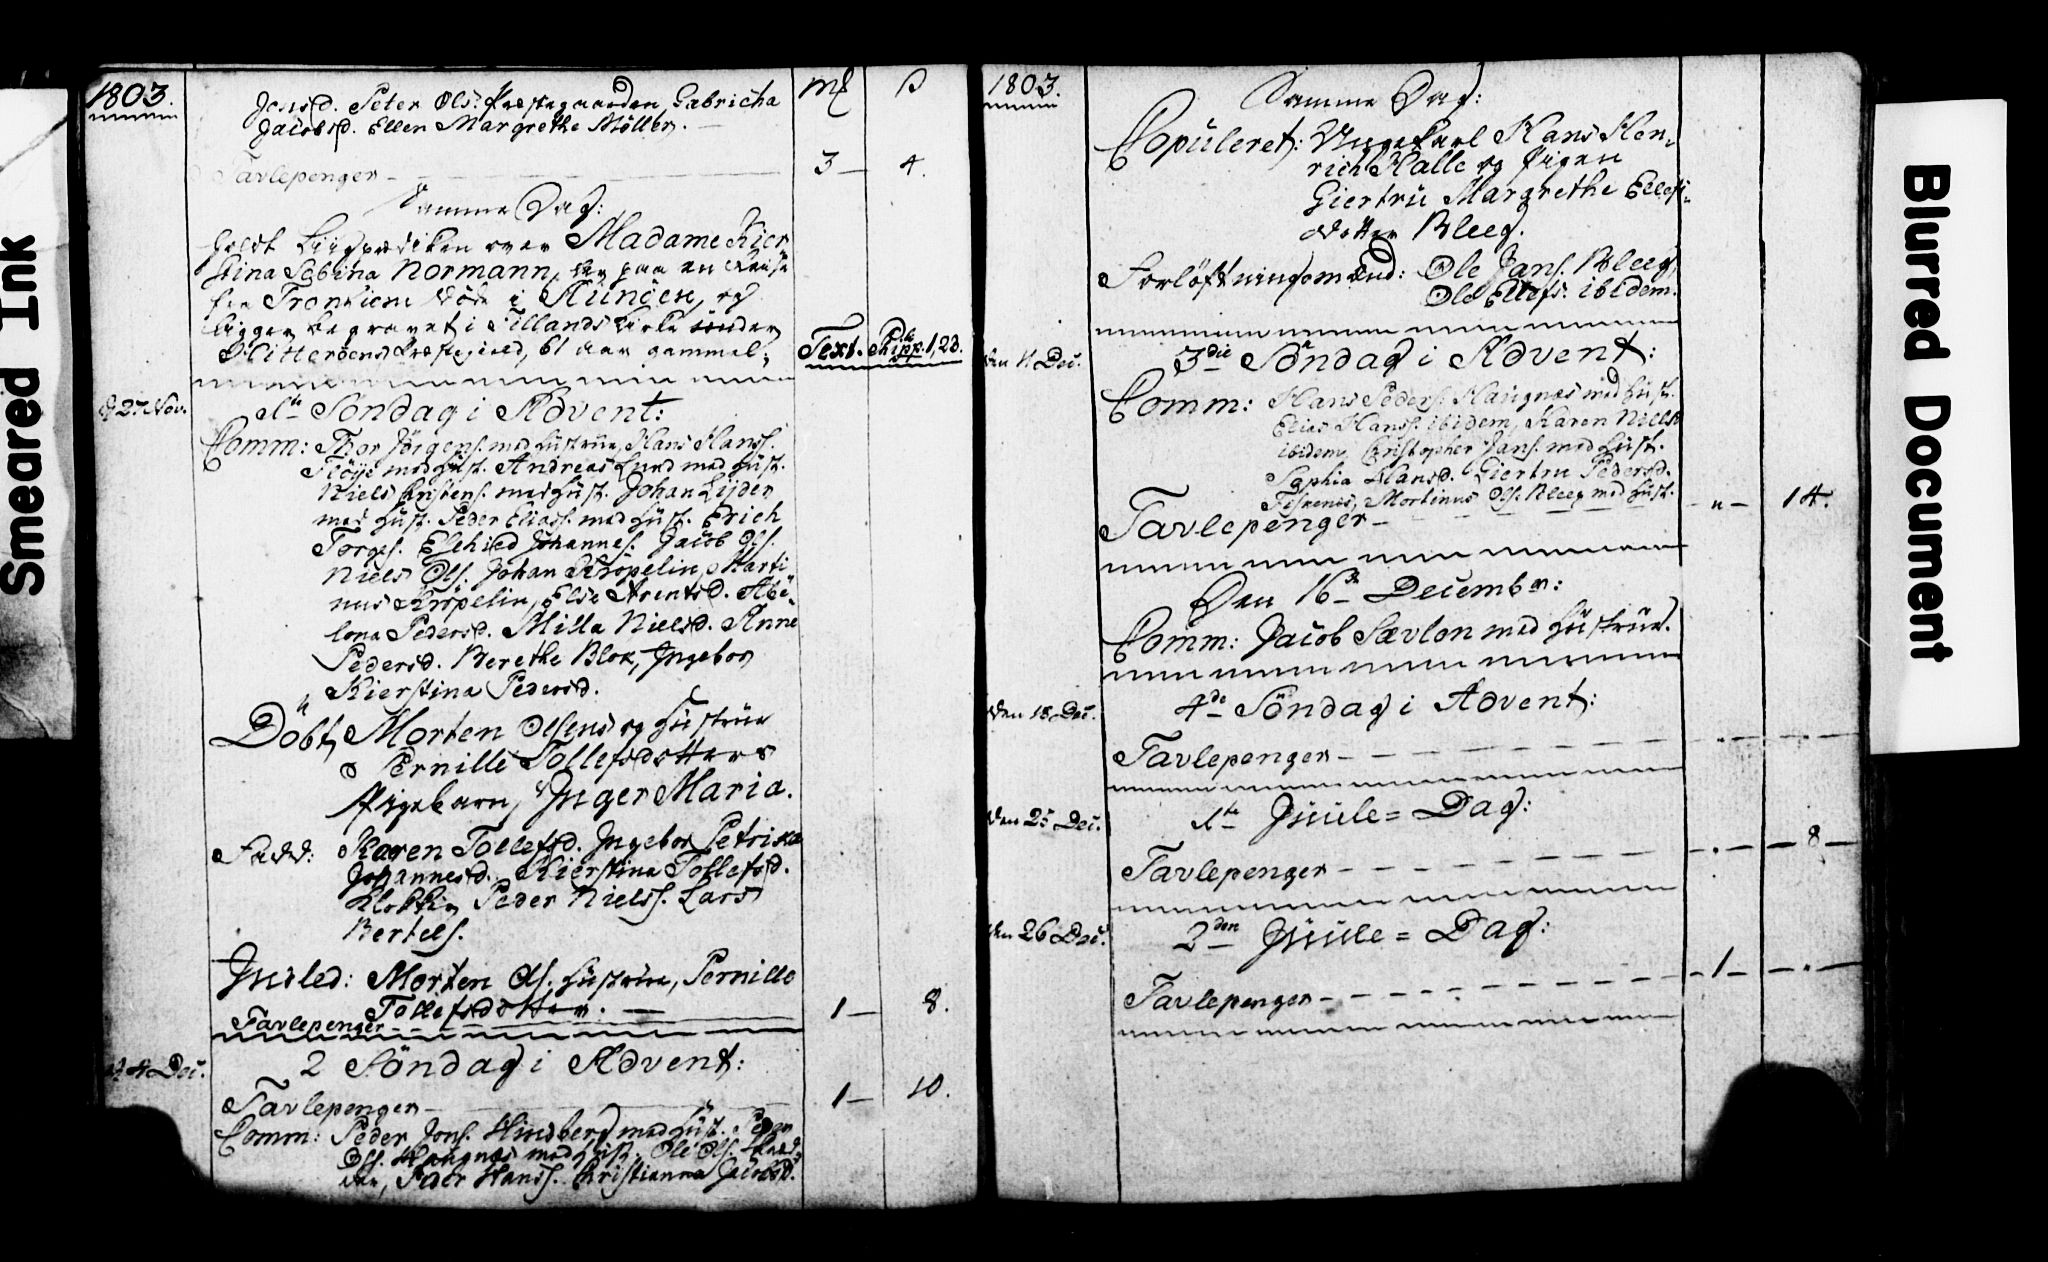 Smeared Ink
1803.
Jensd. Peter Ols. Præstegaarden, Gabricha
Jacobsd. Ellen Margrethe Møller.
mk ß
Tavlepenger - 3 - 4.
Samme Dag:
holdt Liigprædiken over Madame Kier
stina Sabina Normann, der paa en Reise
fra Tronhiem døde i
ligger begravet i Tillands Kirke under
Hitterøens Præstegield, 61 aar gammel.
Text. Phipp. 1, 23.
d. 27 Nov.
1te Søndag i Advent:
Comm: Thor Jørgens. med Hustrue, Hans Hanss.
Fløye med Hust. Andreas Lund med Hust.
Niels Christens. med Hust. Johan Lijder
med Hust. Peder Eliass. med Hust. Erich
Torges. Johannes. Jacob Ols.
Niels Ols. Johan Krøpelin, Marti
nus Krøpelin, Else Arentsd. Abe-
lona Pedersd. Milla Nielsd. Anne
Pedersd. Berethe Blox, Ingebor
Kierstina Pedersd.
Døbt, Morten Olsens og Hustrue
Pernille Tollefsdotters
Pigebarn, Inger Maria.
Fadd: Karen Tollefsd. Ingebor Petrika
Johannesd. Kierstina Tollefsd.
Peder Nielss. Lars
Bertels.
Indled: Morten Ols. Hustrue, Pernille
Tollefsdotter.
Tavlepenger 1 - 8.
d. 4 Dec.
2 Søndag i Advent:
Tavlepenger - 1 - 10.
Comm: Peder Jons. Hindberg med Hust. Peder
Ols. Haugnæs med Hust. Ole Ols.
Peder Hanss. Christianna Jacobsd.
1803.
Samme Dag:
Copuleret: Ungekarl Hans Hen-
rich Halle og Pigen
Giertru Margrethe Ellefs-
dotter Bleeg.
Forløftningsmænd: Ole Jans. Bleeg,
Ole Ellefs. ibidem.
den 11 Dec.
3die Søndag i Advent:
Comm: Hans Peders. Haugnæs med Hust.
Elias Hanss. ibidem, Karen Nielsd.
ibidem, Christopher Jans. med Hust.
Sophia Hansd. Giertru Pedersd.
Martinus Ols. Bleeg med Hust.
Tavlepenger - " - 14.
Den 16de December:
Comm: Jacob Sævlon med Hustrue.
den 18 Dec.
4de Søndag i Advent:
Tavlepenger -
den 25 Dec.
1te Juule = Dag:
Tavlepenger - 8 -
den 26 Dec.
2den Juule = Dag:
Tavlepenger - 1 -
Blurred Document